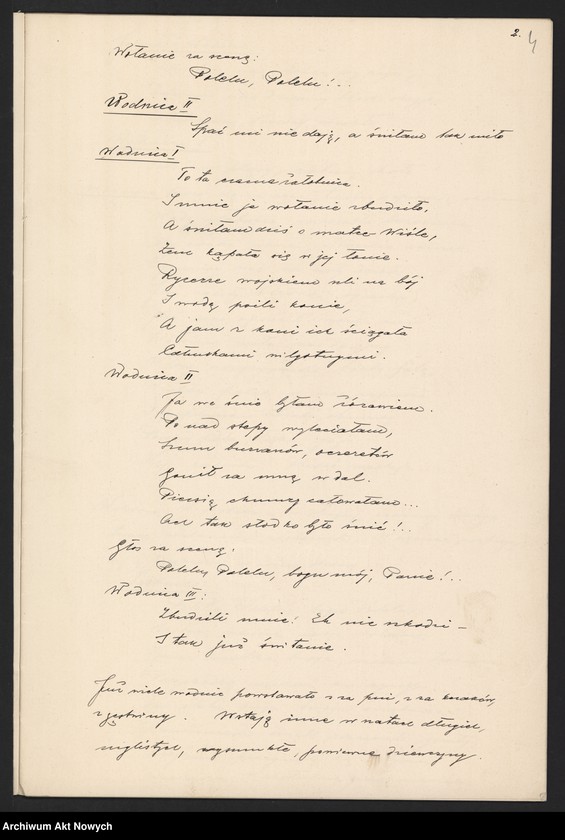 2. 4
Wołanie za sceną:
Polelu, Polelu!...
Wodnica II
Spać mi nie dają, a śniłam tak miło
Wodnica I
To ta sama żałobnica.
I mnie jej wołanie zbudziło.
A śniłam dziś o matce Wiśle,
Żem kąpała się w jej łonie.
Rycerze wojskiem szli na bój
I wodą poili konie,
A jam z koni ich ściągała
Całuskami wilgotnymi.
Wodnica II
Ja we śnie byłam żórawiem.
Ponad stepy wyleciałam,
Szum burzanów, oczeretów
Gonił za mną w dal.
Piersią chmury całowałam...
Ach tak słodko było śnić!..
Głos za sceną:
Polelu, Polelu, bogu mój, Panie!..
Wodnica III:
Zbudzili mnie! Eh nic nie szkodzi –
I tak już świtanie.
Już wiele wodnic powstawało z za pni, z za krzaków,
z gęstwiny. Wstają inne w szatach długich,
mglistych, wysmukłe, powiewne dziewczyny.
Archiwum Akt Nowych